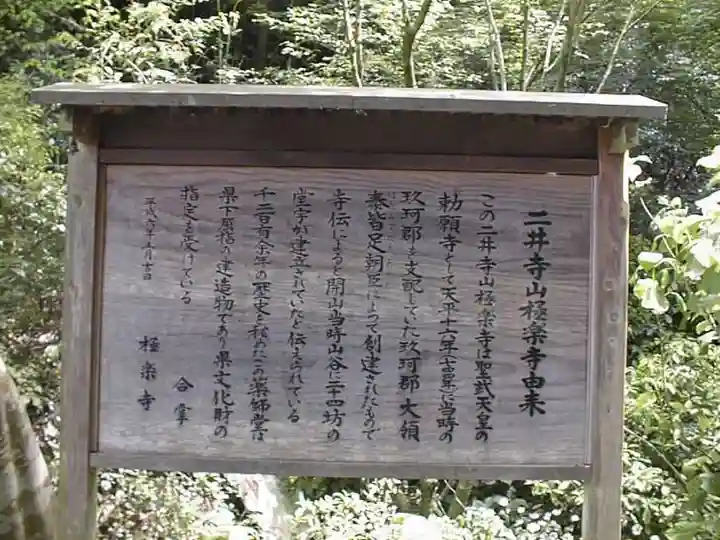 二井寺山極楽寺由来
この二井寺山極楽寺は聖武天皇の
勅願寺として天平十六年(七四四年)に当時の
玖珂郡を支配していた玖珂郡大領
秦皆足朝臣によって創建されたもので
寺伝によると開山当時山谷に二十四坊の
堂宇が建立されていたと伝えられている
千二百有余年の歴史を秘めたこの薬師堂は
県下屈指の建造物であり県文化財の
指定を受けている
合掌
平成六年 月 日
極楽寺